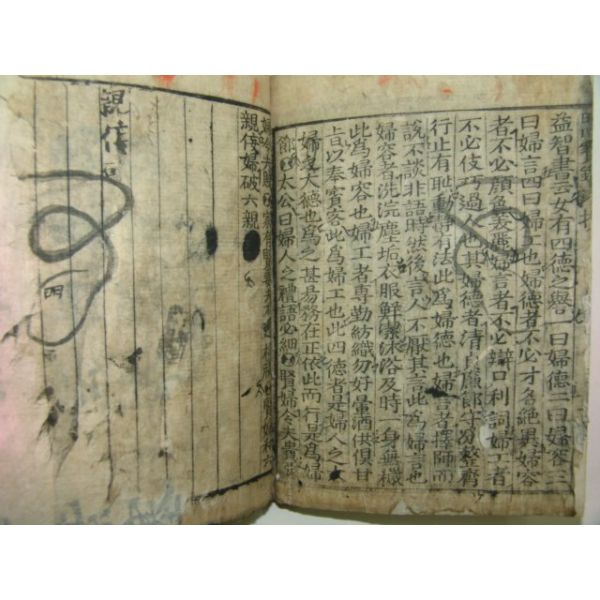 益智書云女有四德之譽一曰婦德二曰婦容三
曰婦言四曰婦工也婦德者不必才名絶異婦容
者不必顔色美麗婦言者不必辯口利詞婦工者
不必伎巧過人也其婦德者清貞廉節守分整齊
行止有耻動静有法此爲婦德也婦言者擇師而
說不談非語時然後言人不厭其言此爲婦言也
婦容者洗浣塵垢衣服鮮潔沐浴及時一身無穢
此爲婦容也婦工者專勤紡織勿好暈酒供俱甘
旨以奉賓客此爲婦工也此四德者是婦人之
婦之大德也爲之甚易務在正依此而行是爲婦
節太公曰婦人之禮語必細賢婦令夫貴
婦令夫賤
親佞婦破六親
親佞
四